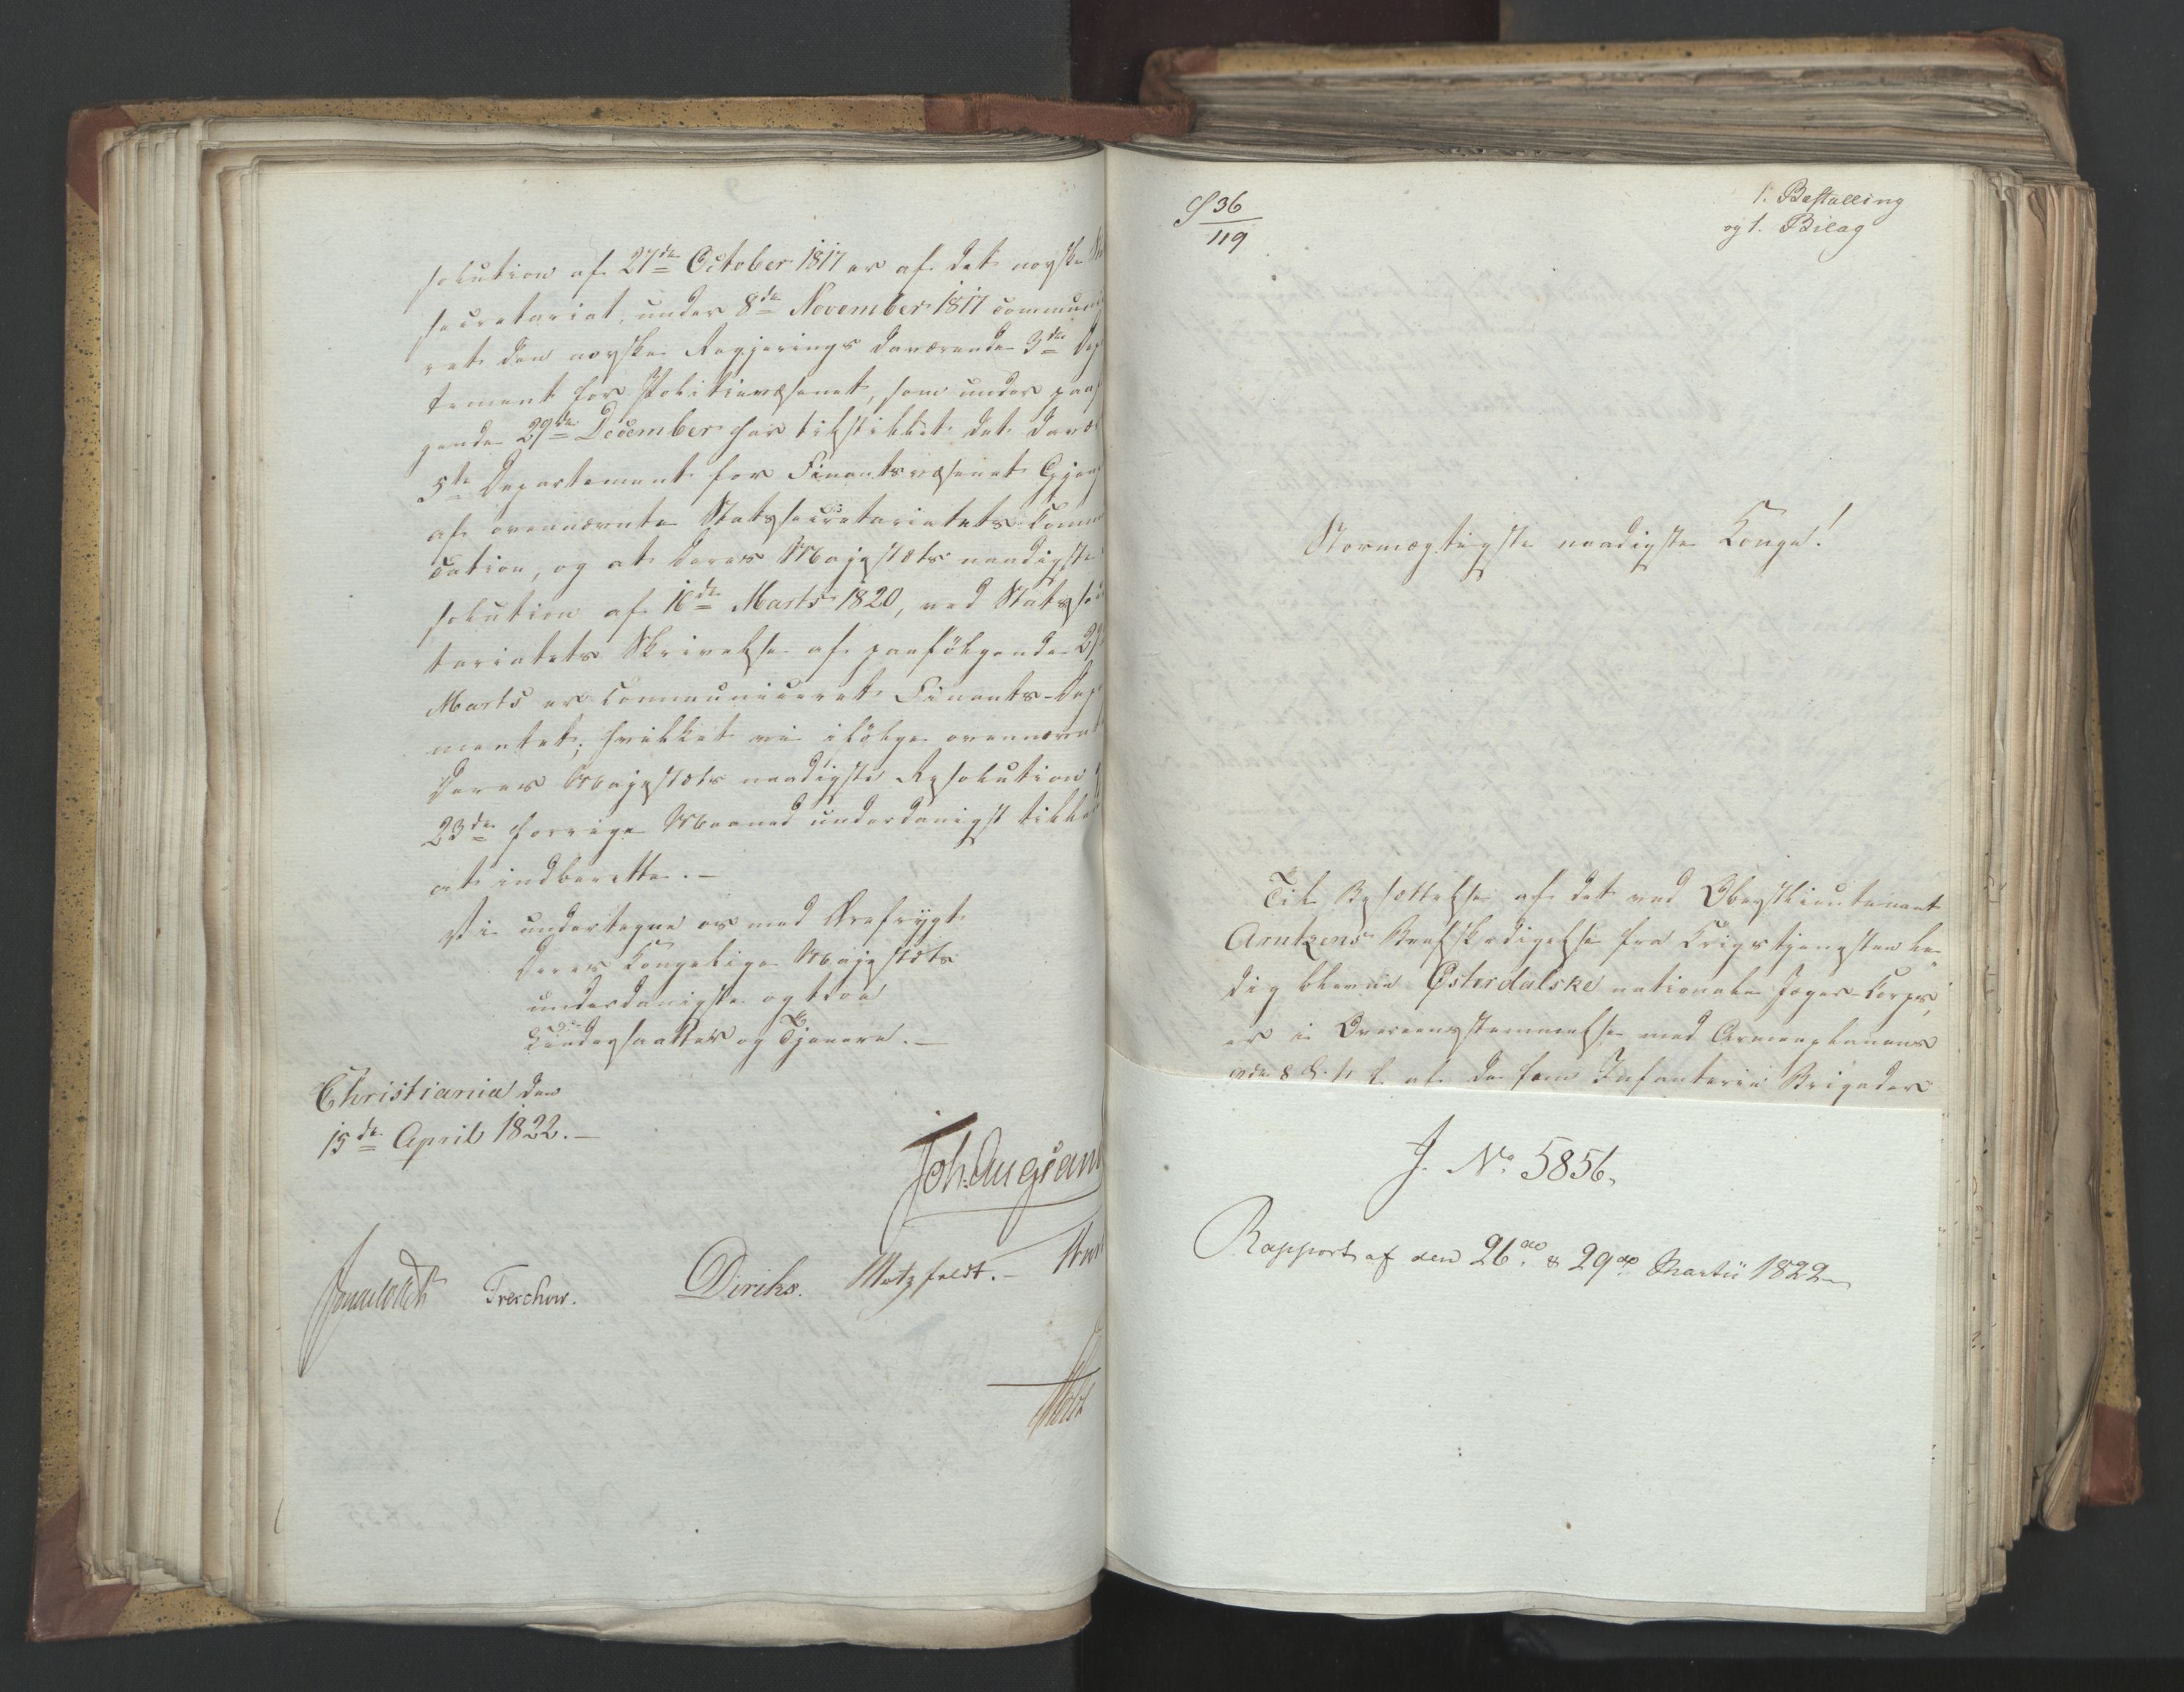 solution af 27de October 1817 er af det norske
secretariat under 8de November 1817 communi
ret den norske Regjerings daværende 3die Dep
tement for Politievæsenet, som under paaf
gende 29de December har tilstillet det davæ
5te Departement for Finantsvæsenet Gjen
af ovennævnte Statssecretariatets Comm
cation, og at Deres Majestæts naadigste
solution af 16de Marts 1820, ved Statsse
tariatets Skrivelse af paafölgende
Marts er communiceret Finants-Dep
mentet; hvilket vi ifölge ovennævn
Deres Majestæts naadigste Resolution
23de forrige Maaned underdanigst
at indberette. —
Vi undertegne os med Ærefrygt
Deres Kongelige Majestæts
underdanigste og troe
Undersaatter og Tjenere. —
Christiania den
15de April 1822. —
Joh. Aug. San
Sommelfeldt Treschow. Diriks. Motzfeldt. —
Holst
S 36
119
1. Bestalling
og 1. Bilag
Stormægtigste naadigste Konge!
Til Besættelse af det ved Oberstlieutenant
Arntzens Beskedigelse fra Krigstjenesten le-
dig blevne Österdalske nationale Jæger-Corps,
er i Overeensstemmelse med Armeeplanens
af de fem Infanterie Brigader
J. No 5856.
Rapport af den 26de & 29de Martii 1822